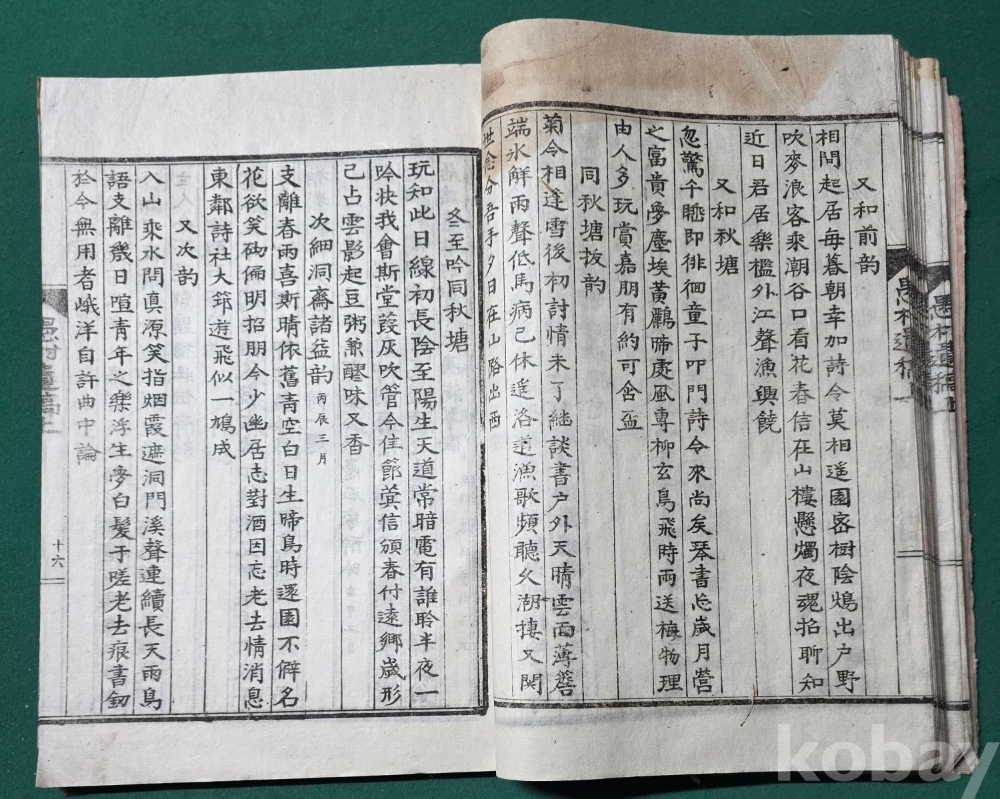 又和前韵
相問起居每暮朝幸加詩令莫相遥園密樹陰鴆出户野
吹麥浪客乘潮谷口看花春信在山樓懸燭夜魂招聊知
近日君居樂檻外江聲漁興饒
又和秋塘
忽驚千睡即徘徊童子叩門詩令來尚矣琴書忘歲月營
之富貴夢塵埃黄鸝啼處風專柳玄鳥飛時雨送梅物理
由人多玩賞嘉朋有約可含盃
同秋塘拔韵
菊令相逢雪後初討情未了継談書户外天晴雲面薄簷
端氷解雨聲低馬病已休遥洛道漁歌頻聽久湖捿又関
世念分吾手夕日在山路出西
冬至吟同秋塘
玩知此日線初長陰至陽生天道常暗電有誰聆半夜一
吟快我會斯堂葭灰吹管今佳節蓂信頒春付遠鄉歲形
已占雲影起豆粥兼醪味又香
次細洞齋諸益韵 丙辰三月
支離春雨喜斯晴依舊青空白日生啼鳥時還園不僻名
花欲笑砌偏明招朋今少幽居志對酒因忘老去情消息
東鄰詩社大邽遊飛似一鳩成
又次韵
入山乘水問真源笑指烟霞遮洞門溪聲連續長天雨鳥
語支離幾日喧青年之樂浮生夢白髮于嗟老去痕書釰
於今無用者峨洋自許曲中論
愚村遺稿上
十六
愚村遺稿
愚村遺稿上
kobay